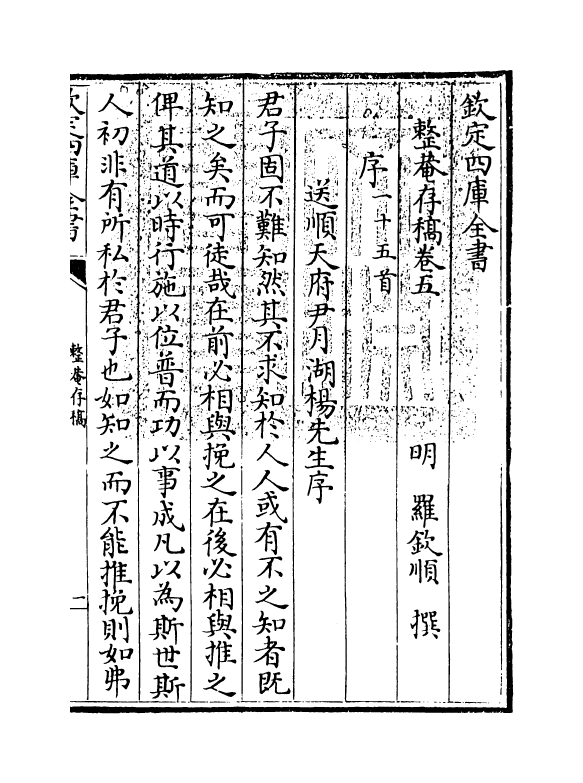 欽定四庫全書
整菴存稿卷五
明 羅欽順 撰
序一十五首
送順天府尹月湖楊先生序
君子固不難知然其不求知於人人或有不之知者既
知之矣而可徒哉在前必相與挽之在後必相與推之
俾其道以時行施以位普而功以事成凡以為斯世斯
人初非有所私於君子也如知之而不能推挽則如弗
欽定四庫全書
整菴存稿